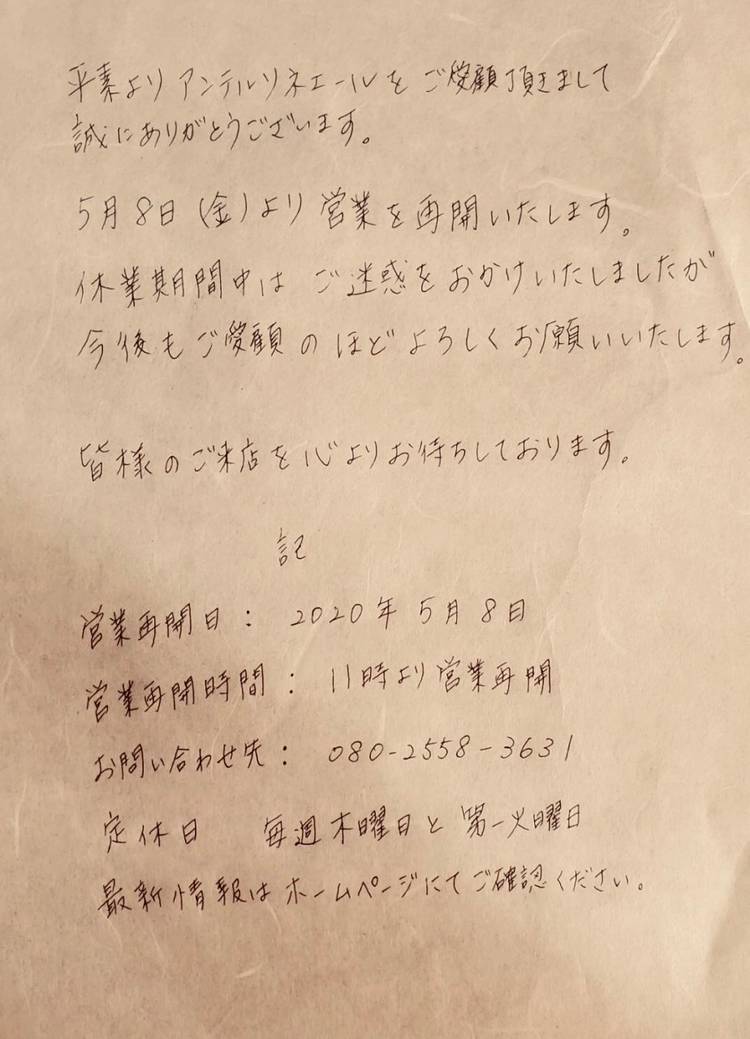 平素より アンテルリネエールを ご愛顧頂きまして
誠にありがとうございます。
5月8日(金)より 営業を再開いたします。
休業期間中は ご迷惑をおかけいたしましたが
今後もご愛顧のほどよろしくお願いいたします。
皆様のご来店を心よりお待ちしております。
記
営業再開日： 2020年 5月 8日
営業再開時間： 11時より営業再開
お問い合わせ先： 080-2558-3631
定休日 毎週木曜日と第一火曜日
最新情報はホームページにてご確認ください。